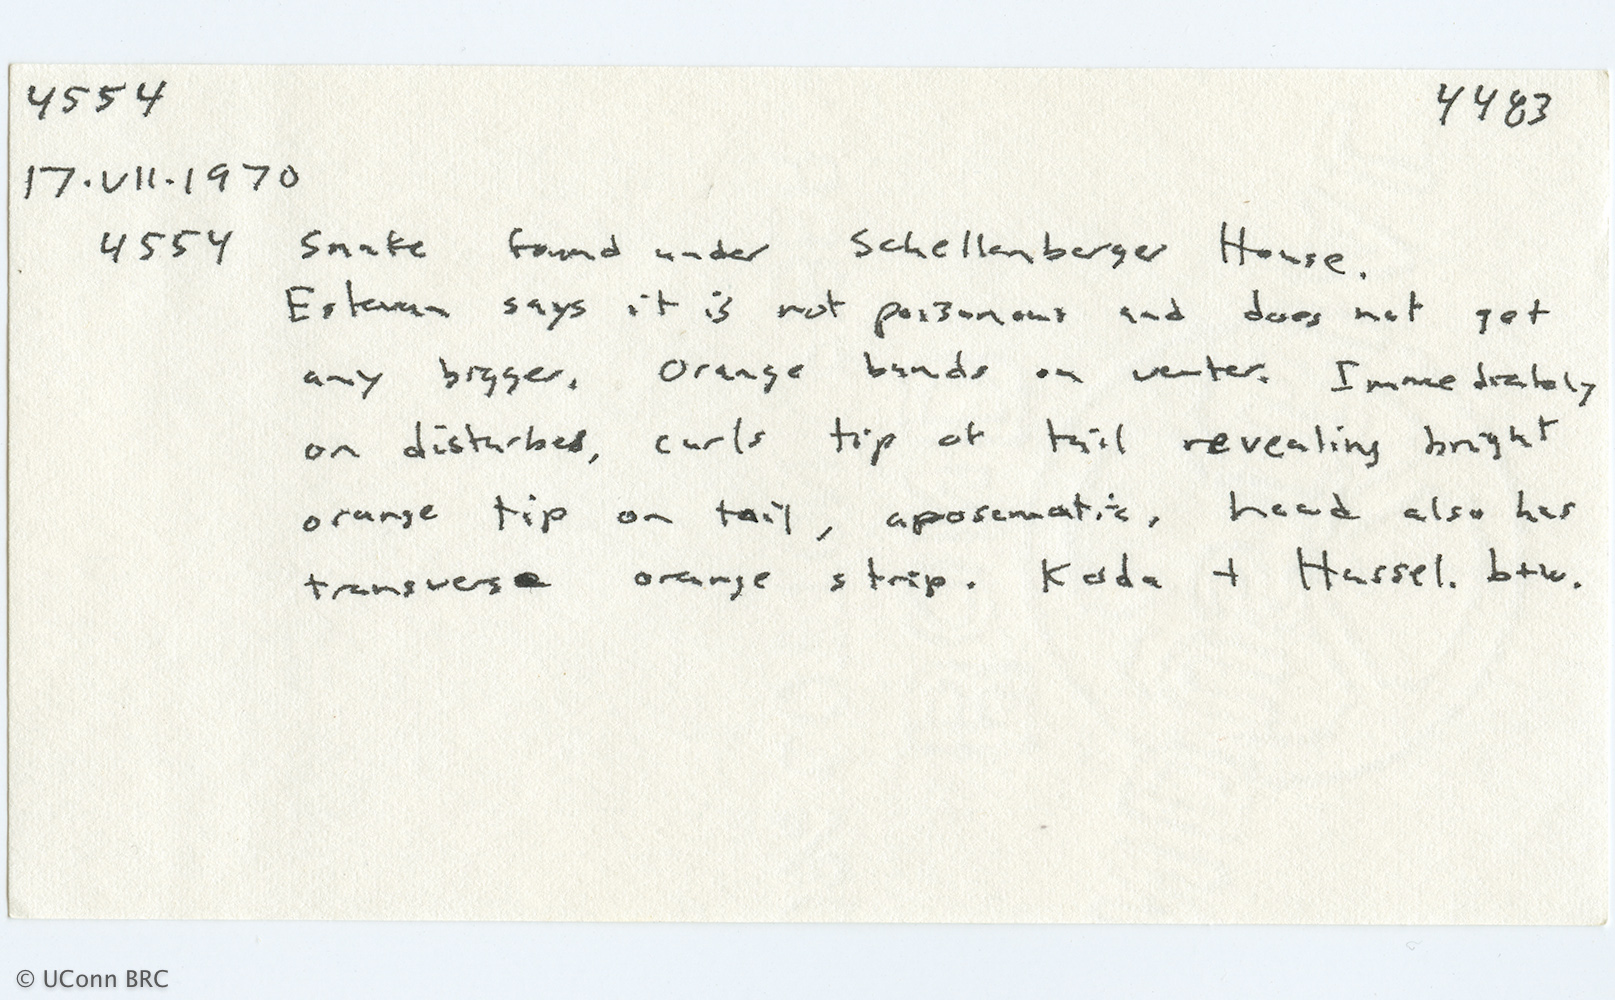 4554 4483
17.VII.1970
4554 Snake found under Schellenberger House.
Estevan says it is not poisonous and does not get
any bigger. Orange bands on venter. Immediately
on disturbed, curls tip of tail revealing bright
orange tip on tail, aposematic, head also has
transverse orange strip. Koda + Hassel. b+w.
© UConn BRC